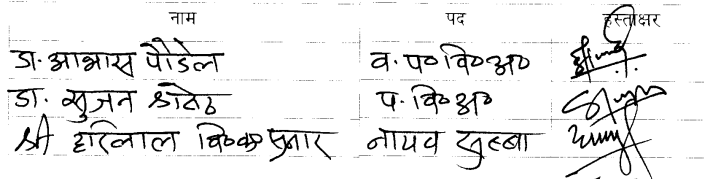 नाम पद हस्ताक्षर
डा. आभास पौडेल व. प० वि० अ०
डा. सुजन श्रेष्ठ प. वि० अ०
श्री हरिलाल वि०क सुनार नायव सुब्बा